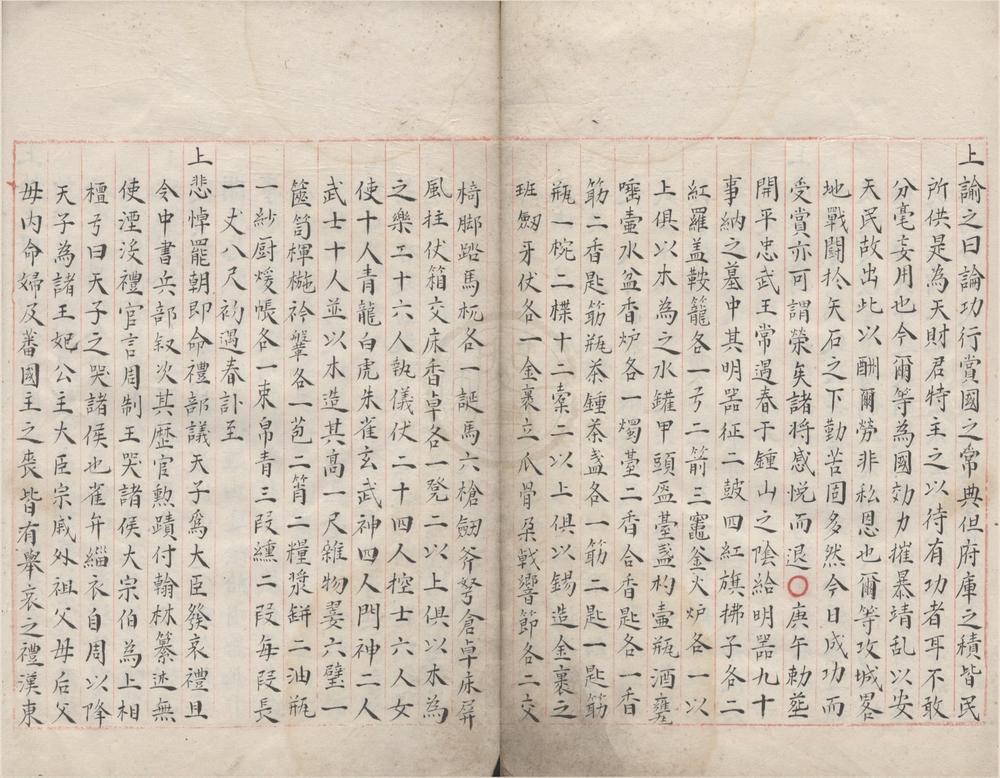 上諭之曰論功行賞國之常典但府庫之積皆民
所供是為天財君特主之以待有功者耳不敢
分毫妄用也今爾等為國効力摧暴靖乱以安
天民故出此以酬爾勞非私恩也爾等攻城畧
地戰鬭扵矢石之下勤苦固多然今日成功而
受賞亦可謂榮矣諸將感悅而退○庚午勅塟
開平忠武王常遇春于鍾山之陰給明器九十
事納之墓中其明器征二皷四紅旗拂子各二
紅羅盖鞍籠各一弓二箭三竈釜火炉各一以
上俱以木為之水罐甲頭盔臺盞杓壷瓶酒甕
唾壷水盆香炉各一燭臺二香合香匙各一香
筯二香匙筯瓶茶鍾茶盞各一筯二匙一匙筯
瓶一椀二楪十二橐二以上俱以錫造金裹之
班劔牙仗各一金裹立爪骨朶戟響節各二交
椅脚踏馬杌各一誕馬六槍劔斧弩倉卓床屏
風拄伏箱交床香卓各一凳二以上俱以木為
之樂工十六人執儀伏二十四人控士六人女
使十人青龍白虎朱雀玄武神四人門神二人
武士十人並以木造其高一尺雜物翣六璧一
篋笥楎椸衿鞶各一苞二筲二糧漿缾二油瓶
一紗厨煖帳各一束帛青三叚纁二叚每叚長
一丈八尺初遇春訃至
上悲悼罷朝即命禮部議天子為大臣發哀禮且
令中書兵部叙次其歷官勲蹟付翰林纂述無
使湮没禮官言周制王哭諸侯大宗伯為上相
檀弓曰天子之哭諸侯也雀弁緇衣自周以降
天子為諸王妃公主大臣宗戚外祖父母后父
母内命婦及蕃國主之喪皆有舉哀之禮漢東